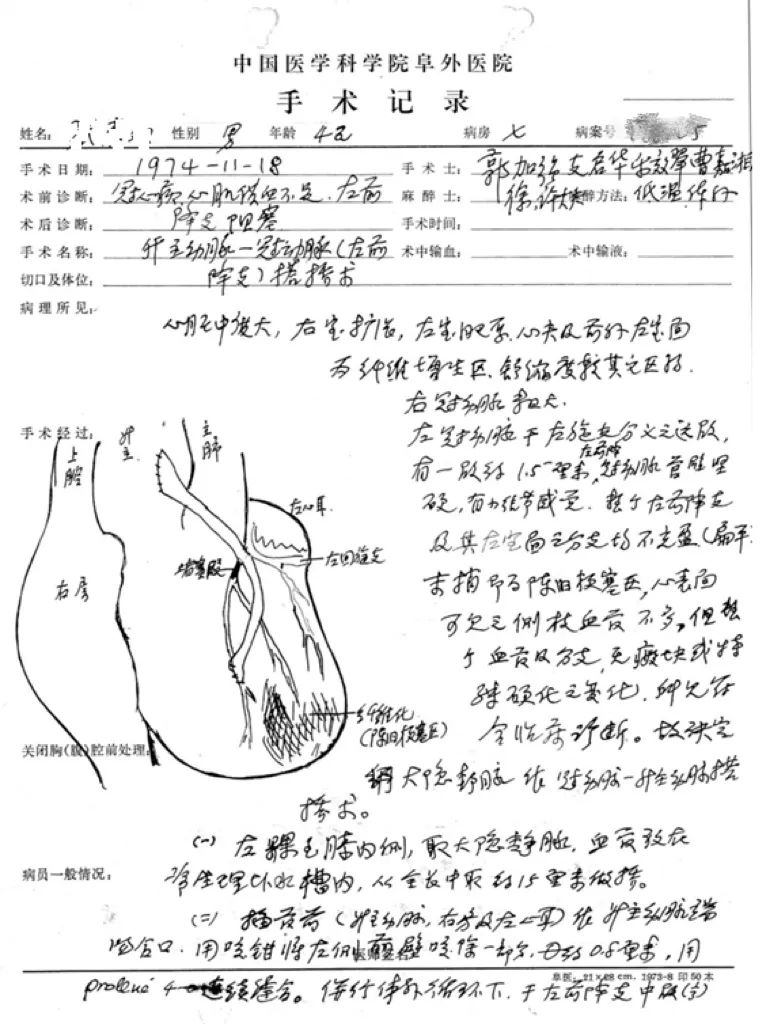 中国医学科学院阜外医院
手术记录
姓名: 性别 男 年龄 病房 七 病案号
手术日期: 1974-11-18 手术士: 郭加强
术前诊断: 冠心病,心肌供血不足.左前 麻醉士: 徐 麻醉方法: 低温,体外
术后诊断: 降支阻塞 手术时间:
手术名称: 升主动脉—冠状动脉(左前 术中输血: 术中输液:
切口及体位: 降支)搭桥术
病理所见:
心脏中度大,右室扩张,左室肥厚.心尖及前外左室面
为纤维增生区.舒缩度较其它区弱.
右冠动脉粗大.
手术经过:
左冠动脉于左旋支分叉之远段,
左前降
有一段约1.5厘米,冠动脉管壁坚
硬,有小结节感觉.整个左前降支
及其左室面之分支均不充盈(扁平
末梢即为陈旧梗塞区,心表面
可见之侧枝血管不多,但整
个血管及分支,无瘢块或特
殊硬化之变化.
合临床诊断。故决定
大隐静脉作冠动脉-升主动脉搭
桥术。
上腔
升主
主肺
左心耳
左回旋支
堵塞段
右房
纤维化
(陈旧梗塞区)
关闭胸(腹)腔前处理:
(一) 左踝至膝内侧,取大隐静脉,血管放在
病员一般情况:
冷生理盐水槽内,从全长中取约15厘米做搭。
(二) 插管前(升主动脉,右房及左心耳)作升主动脉端
吻合口.用咬钳将左侧前壁咬除一部分,口约0.8厘米,用
阜医: 21×28 cm. 1973-8 印50本
prolene 4-0连续缝合。併行体外循环下,于左前降支中段